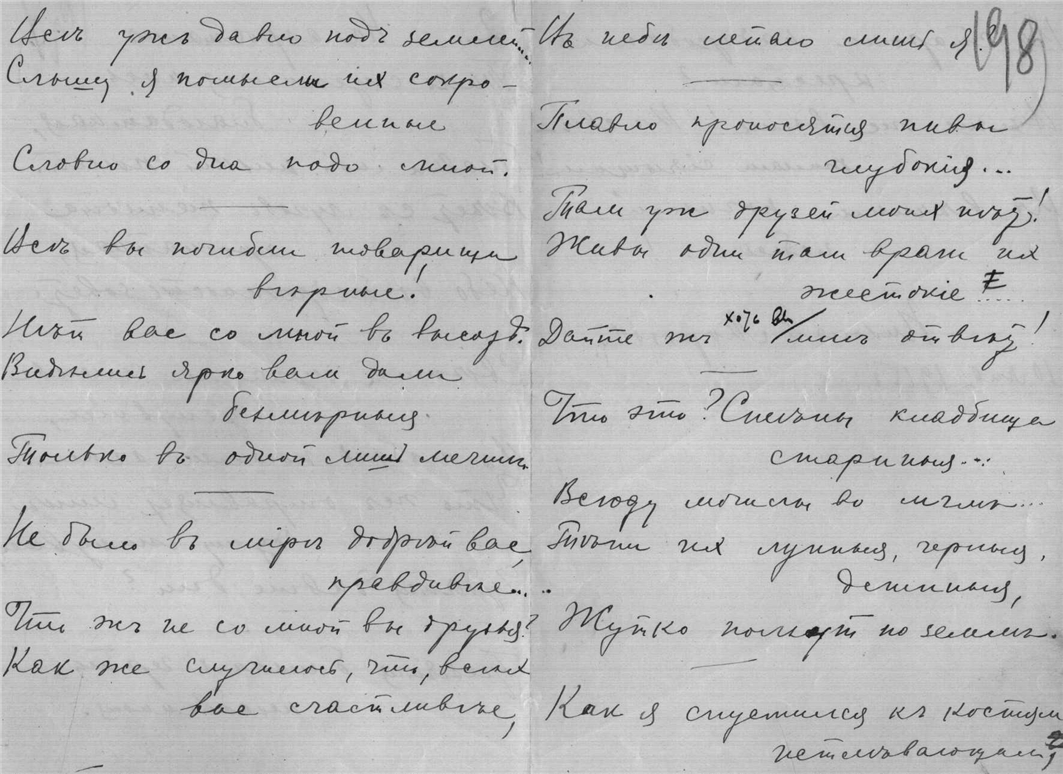 Всѣ ужъ давно подъ землей...
Слышу я помыслы их сокро-
венные
Словно со дна подо мной.
Всѣ вы погибли товарищи
вѣрные!
Нѣтъ вас со мной въ
Видѣлись ярко вам дали
безмѣрныя.
Только въ одной лишь мечтѣ.
Не было въ мірѣ добрѣй вас,
правдивѣе...
Что жъ не со мной вы друзья?
Как же случилось, что, всѣхъ
вас счастливѣе,
Въ небѣ летаю лишь я?
198
Плавно проносятся нивы
глубокія...
Там уж друзей моих нѣтъ!
Живы одни там враги их
жестокіе
Дайте жъ хоть вы мнѣ отвѣтъ!
Что это? Сплошь кладбища
старинныя...
Всюду могилы во мглѣ...
Тѣни их лунныя, черныя,
длинныя,
Жутко ползут по землѣ.
Как я спустился къ костям
истлѣвающим,